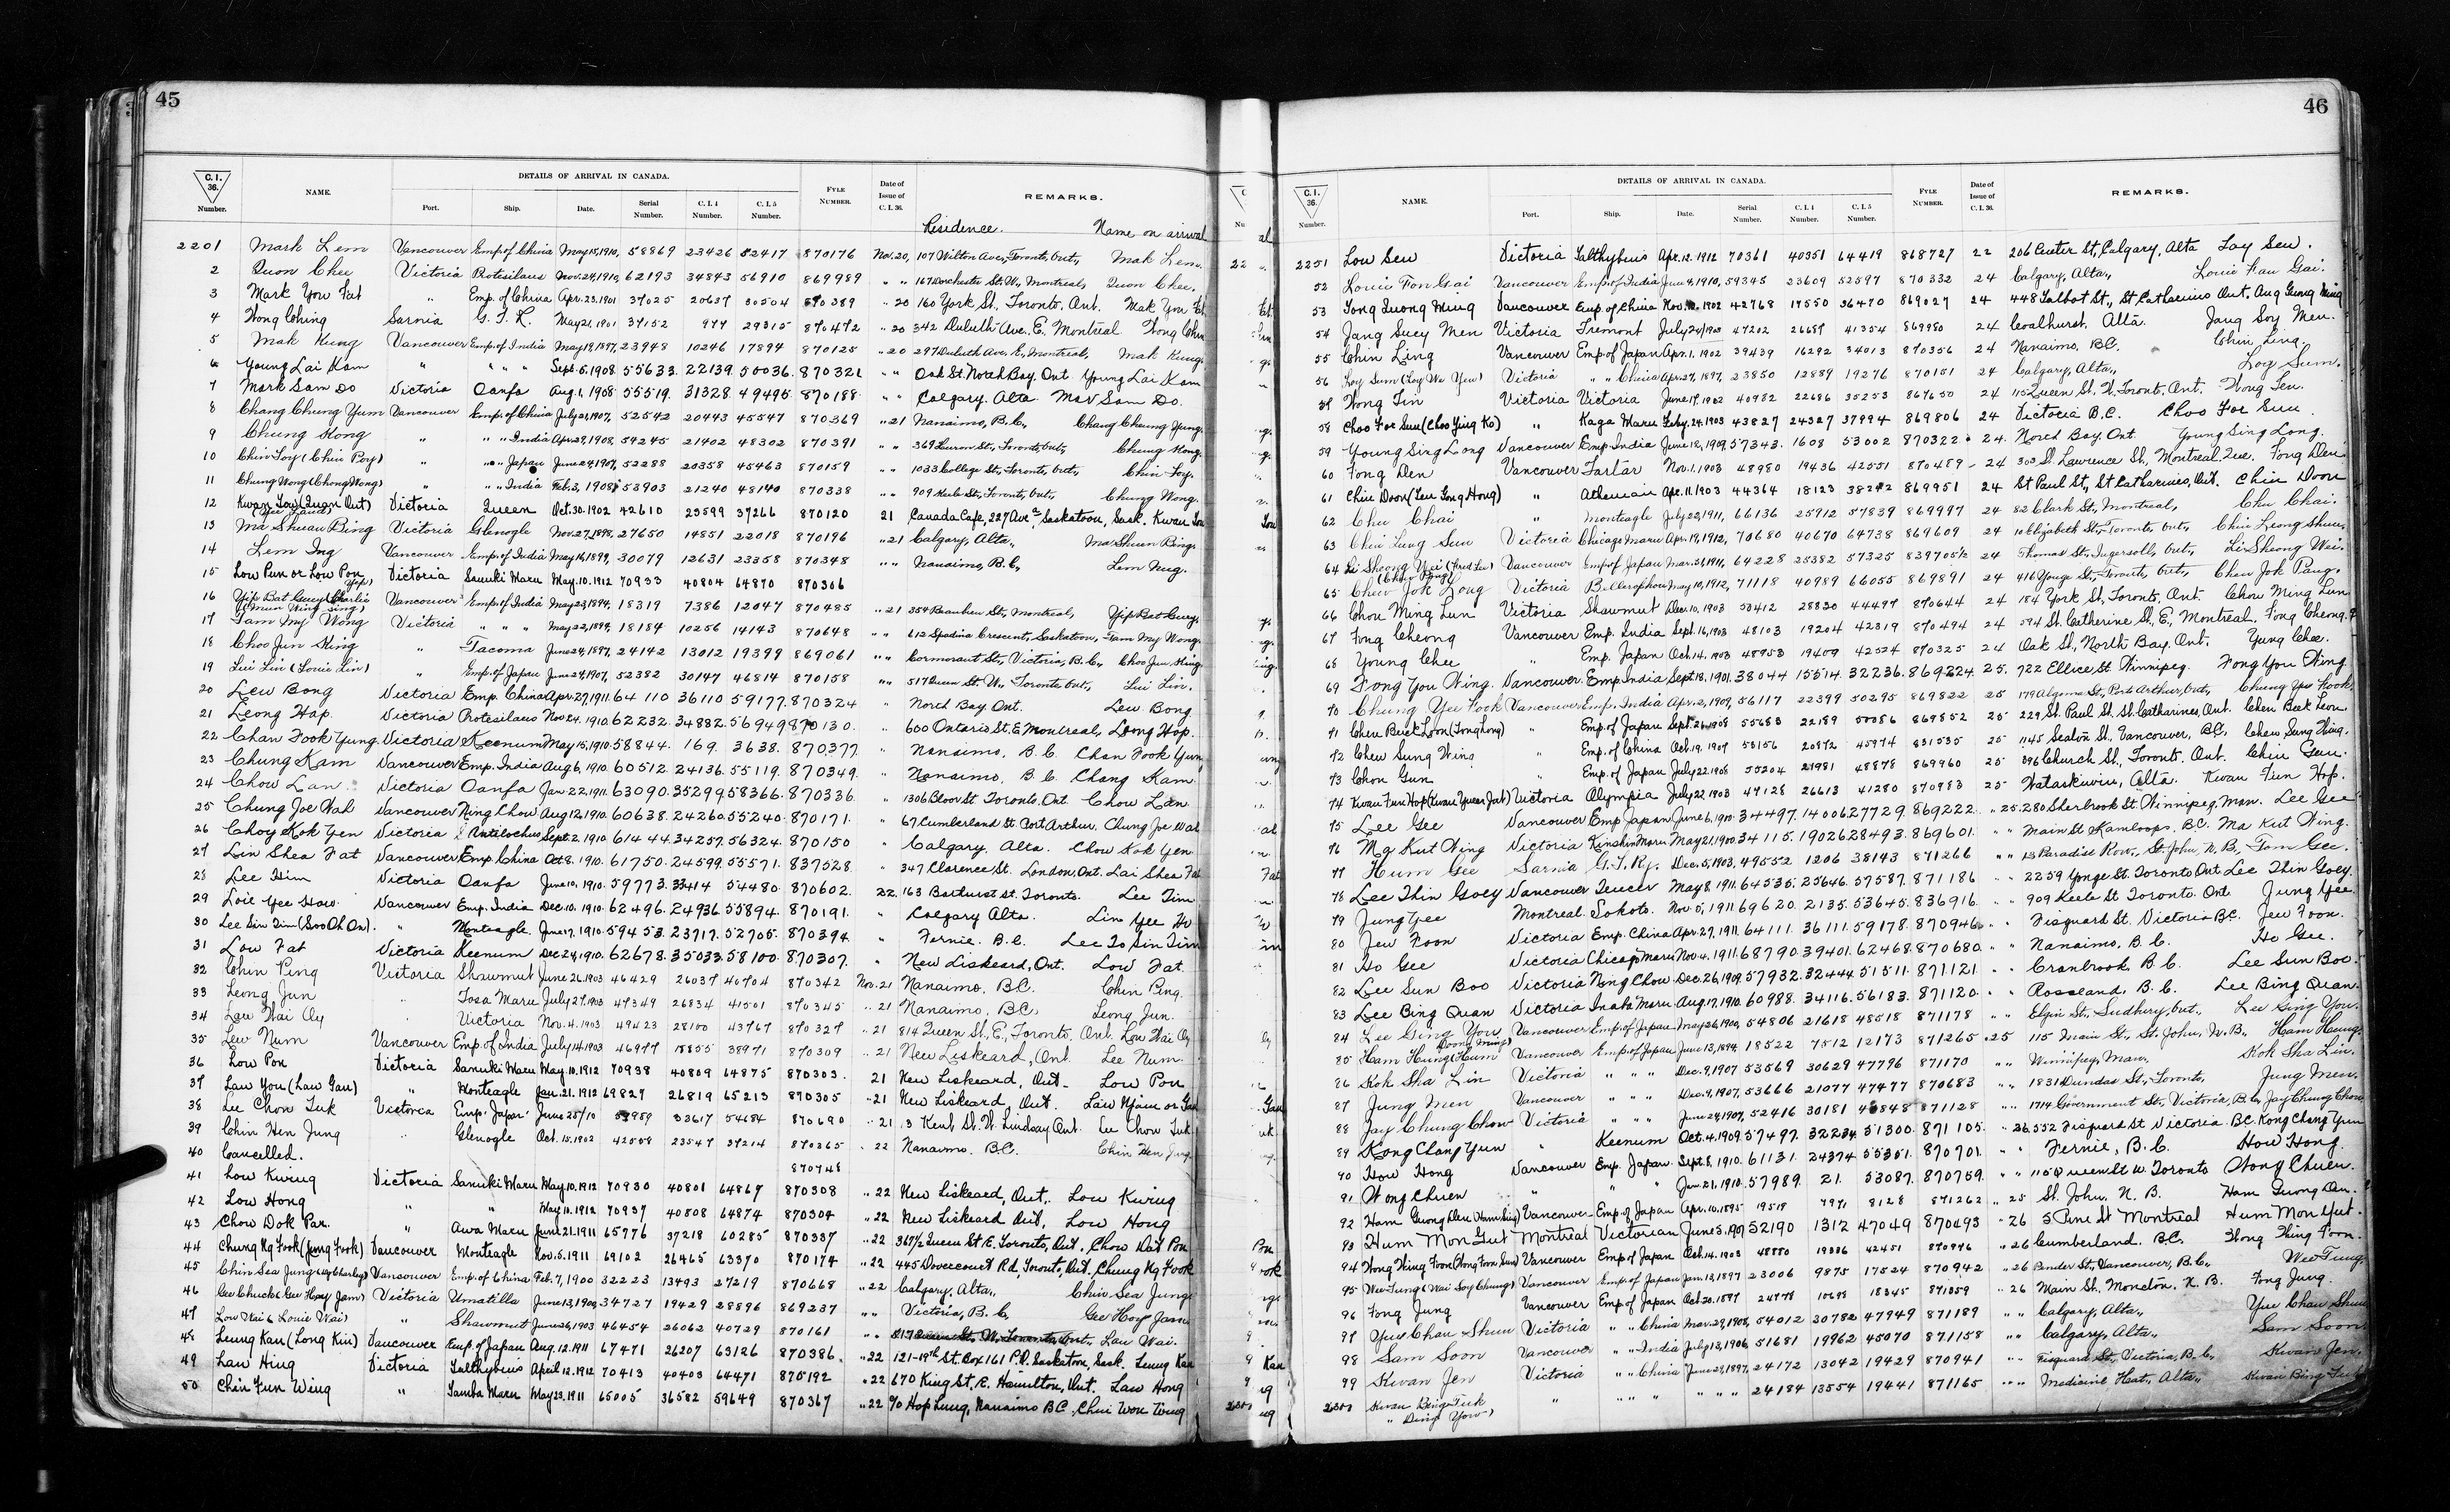 45
C.I. 36. Number. NAME. DETAILS OF ARRIVAL IN CANADA. Port. Ship. Date. Serial Number. C.I.4 Number. C.I.5 Number. FYLE NUMBER. Date of Issue of C.I.36. REMARKS.
Residence. Name on arrival
2201 Mark Lem Vancouver Emp. of China May 15, 1910, 58869 23426 52417 870176 Nov. 20, 107 Wilton Ave, Toronto, Ont., Mak Lem.
2 Quon Chee Victoria Protesilaus Nov. 24, 1910, 62193 34843 56910 869989 " " 167 Dorchester St. W., Montreal, Quon Chee.
3 Mark You Fat " Emp. of China Apr. 23. 1901 37025 20637 30504 870389 " 20 160 York St., Toronto. Ont. Mak You Fat
4 Wong Ching Sarnia G. T. R. May 21, 1901 37152 977 29315 870472 " 20 342 Duluth Ave. E. Montreal Wong Chin
5 Mak Kung Vancouver Emp. of India May 19, 1897, 23948 10246 17894 870125 " 20 297 Duluth Ave. E., Montreal, Mak Kung.
6 Young Lai Kam " " " " Sept. 6. 1908 55633. 22139. 50036. 870321 " " Oak St. North Bay. Ont Young Lai Kam
7 Mark Sam Do Victoria Oanfa Aug. 1, 1908 55519. 31328. 49495. 870188. " " Calgary. Alta Mar Sam Do.
8 Chang Chung Yum Vancouver Emp. of China July 21, 1907, 52542 20443 45547 870369 " 21 Nanaimo, B.C., Chang Cheung Yung.
9 Chung Kong " " " India Apr. 29, 1908, 54245 21402 48302 870391 " " 369 Huron St., Toronto, Ont., Cheung Kong.
10 Chin Foy (Chin Poy) " " " Japan June 24, 1907, 52288 20358 45463 870159 " " 1033 College St., Toronto, Ont., Chin Foy.
11 Chung Wong (Chong Wong) " " " India Feb. 3, 1908 53903 21240 48140 870338 " " 909 Keele St., Toronto, Ont., Chung Wong.
12 Kwan Soy (Quan Out) Victoria Queen Oct. 30. 1902 42610 23599 37266 870120 21 Canada Cafe, 227 Ave. Saskatoon, Sask. Kwan
13 Ma Shuan Bing Victoria Glenogle Nov. 27, 1898, 27650 14851 22018 870196 " 21 Calgary, Alta., Ma Shuen Bing.
14 Lem Ing Vancouver Emp. of India May 16, 1899, 30079 12631 23358 870348 " " Nanaimo, B.C., Lem Nug.
15 Low Pun or Low Pon Victoria Sanuki Maru May. 10. 1912 70933 40804 64870 870306
16 Yip Bat Guey (Charlie Yip) Vancouver Emp. of India May 23, 1894, 18319 7386 12047 870485 " 21 354 Beaubien St., Montreal, Yip Bat Guey.
(Mun Wing Sing)
17 Tam My Wong Victoria " " " May 22, 1894, 18184 10256 14143 870648 " " 612 Spadina Crescent, Saskatoon, Tam My Wong.
18 Choo Jun King " Tacoma June 24, 1897, 24142 13012 19399 869061 " " Cormorant St., Victoria, B.C., Choo Jun King.
19 Lui Lin (Louie Lin) " Emp. of Japan June 24, 1907, 52382 30147 46814 870158 " " 517 Queen St. W., Toronto, Ont., Lui Lin.
20 Lew Bong Victoria Emp. China Apr. 27, 1911. 64110 36110 59177. 870324 " North Bay Ont. Lew Bong
21 Leong Hap. Victoria Protesilaus Nov 24. 1910. 62232. 34882. 56949 870130. " 600 Ontario St. E Montreal, Leong Hop.
22 Chan Fook Yung Victoria Keenum May 15, 1910. 58844. 169. 3638. 870377 " Nanaimo, B.C. Chan Fook Yun
23 Chung Kam Vancouver Emp. India Aug 6, 1910. 60512. 24136. 55119. 870349. " Nanaimo, B.C. Chang Kam.
24 Chow Lan. Victoria Oanfa Jan. 22, 1911. 63090. 35299. 58366. 870336. " 1306 Bloor St Toronto. Ont. Chow Lan.
25 Chung Joe Wah Vancouver Ning Chow Aug 12, 1910. 60638. 24260. 55240. 870171. " 67. Cumberland St. Port Arthur. Chung Joe Wah
26 Choy Kok Yen Victoria Antilochus Sept. 2. 1910. 61444. 34257. 56324. 870150 " Calgary. Alta. Chow Kok Yen
27 Lin Shea Fat Vancouver Emp. China Oct 8. 1910. 61750. 24599. 55571. 837528. " 347 Clarence St. London, Ont. Lai Shea Fat
28 Lee Him Victoria Oanfa June 10, 1910. 59773. 33414 54480. 870602. 22. 163 Bathurst St. Toronto. Lee Tim
29 Loie Yee How. Vancouver Emp. India Dec. 10. 1910. 62496. 24936. 55894. 870191. " Calgary Alta. Lin Yee Ho
30 Lee Sin Tim (Soo Oh On). " Monteagle June 17, 1910. 59453. 23717. 52705. 870394. " Fernie. B.C. Lee To Sin Tim
31 Low Fat Victoria Keenum Dec 24, 1910. 62678. 35033. 58100. 870307. " New Liskeard, Ont. Low Fat.
32 Chin Ping Victoria Shawmut June 26. 1903 46429 26037 40704 870342 Nov. 21 Nanaimo. B.C. Chin Ping.
33 Leong Jun " Tosa Maru July 27, 1903 47349 26834 41501 870345 " 21 Nanaimo, B.C. Leong Jun.
34 Law Wai Oy " Victoria Nov. 4. 1903 49423 28100 43767 870327 " 21 814 Queen St., E., Toronto, Ont. Low Wai Oy
35 Lew Num Vancouver Emp. of India July 14. 1903 46977 18855 38971 870309 " 21 New Liskeard, Ont. Lee Num.
36 Low Pon Victoria Sanuki Maru May. 10. 1912 70938 40809 64875 870303. 21 New Liskeard, Ont. Low Pon
37 Law You (Law Gau) " Monteagle Jan. 21. 1912 69827 26819 65213 870305 " 21 New Liskeard, Ont. Law Njam or Gau
38 Lee Chow Tuk Victoria Emp. Japan June 25/10 59989 33617 54684 870690 " 21. 3 Kent St. W. Lindsay Ont. Lee Chow Tuk
39 Chin Hen Jung " Glenogle Oct. 15. 1902 42558 23547 37214 870265 " 22 Nanaimo. B.C. Chin Hen Jung
40 Cancelled. 870748
41 Low Kwing Victoria Sanuki Maru May. 10. 1912 70930 40801 64867 870308 " 22 New Liskeard, Ont., Low Kwing
42 Low Hong " " May. 10. 1912 70937 40808 64874 870304 " 22 New Liskeard Ont, Low Hong
43 Chow Dok Pan. " Awa Maru June 21. 1911 65776 37218 60285 870337 " 22 367½ Queen St. E. Toronto, Ont. Chow Dat Pon
44 Chung Ng Fook (Jung Fook) Vancouver Monteagle Nov. 5. 1911 69102 26465 63370 870174 " 22 445 Dovercourt Rd, Toronto, Ont. Chung Ng Fook
45 Chin Sea Jung Vancouver Emp. of China Feb. 7, 1900 32223 13493 27219 870668 " 22 Calgary, Alta., Chin Sea Jung.
46 Gee Chuck (Gee Hoy Jam) Victoria Umatilla June 13, 1900, 34727 19429 28896 869237 " " Victoria, B.C., Gee Hoy Jam.
47 Low Wai (Louie Wai) " Shawmut June 26, 1903 46454 26062 40729 870161 " " Lau Wai.
48 Leung Kau (Long Kin) Vancouver Emp. of Japan Aug. 12. 1911 67471 26207 63126 870386. " 22 121-19th St. Box 161 P.O. Saskatoon, Sask. Leung Kau
49 Law Hing Victoria Talthybius April 12. 1912 70413 40403 64471 875192 " 22 670 King St., E. Hamilton, Ont. Law Hong
50 Chin Fun Wing " Tamba Maru May 23. 1911 65005 36582 59649 870367 " 22 % Hop Lung, Nanaimo BC. Chin Won Wing
46
C.I. 36. Number. NAME. DETAILS OF ARRIVAL IN CANADA. Port. Ship. Date. Serial Number. C.I.4 Number. C.I.5 Number. FYLE NUMBER. Date of Issue of C.I.36. REMARKS.
2251 Low Sew Victoria Talthybius Apr. 12. 1912 70361 40351 64419 868727 22 206 Center St, Calgary, Alta Loy Sew.
52 Louie Fon Gai Vancouver Emp. of India June 4, 1910, 59345 23609 52597 870332 24 Calgary, Alta., Louie Fau Gai.
53 Tong Quong Ming Vancouver Emp. of China Nov. 1902 42768 17550 36470 869027 24 448 Talbot St., St Catharines Ont. Aug Gung Ming
54 Jang Suey Men Victoria Tremont July 24, 1903 47202 26687 41354 869980 24 Coalhurst, Alta. Jang Soy Men.
55 Chin Ling Vancouver Emp. of Japan Apr. 1. 1902 39439 16292 34013 870356 24 Nanaimo, B.C. Chin Ling.
56 Loy Sum (Loy Wa Yew) Victoria " " China Apr. 27, 1897, 23850 12889 19276 870151 24 Calgary, Alta., Loy Sum.
57 Wong Tin Victoria Victoria June 17. 1902 40982 22686 35253 869650 24 115 Queen St. W. Toronto. Ont. Wong Ten.
58 Choo For Sun (Choo Ying Ko) " Kaga Maru Feby. 24. 1903 43827 24327 37994 869806 24 Victoria B.C. Choo For Sun
59 Young Sing Long Vancouver Emp. India June 12, 1909. 57343. 1608 53002 870322 24. North Bay. Ont. Young Sing Long.
60 Fong Den Vancouver Tartar Nov. 1. 1903 48980 19436 42551 870489 24 303 St. Lawrence St., Montreal. Que. Fong Den
61 Chin Doon (Lew Song Hong) " Athenian Apr. 11. 1903 44364 18123 38272 869951 24 St Paul St., St Catharines, Ont. Chin Doon
62 Chu Chai " Monteagle July 23, 1911, 66136 25912 57839 869997 24 82 Clark St., Montreal, Chu Chai.
63 Chin Lung Sun Victoria Chicago Maru Apr. 19, 1912, 70680 40670 64738 869609 24 10 Elizabeth St., Toronto, Ont., Chin Leong Shun.
64 Li Shoong Wei (Fred Lee) Vancouver Emp. of Japan Mar. 31, 1911, 64228 25382 57325 839705½ 24 Thomas St., Ingersoll, Ont., Li Sheong Wai.
65 Chew Jok Long Victoria Bellerophon May 10, 1912, 71118 40989 66055 869891 24 416 Yonge St., Toronto, Ont., Chew Jok Pang.
66 Chou Ming Lun Victoria Shawmut Dec. 10. 1903 50412 28830 44497 870644 24 184 York St, Toronto. Ont. Chow Ming Lun
67 Fong Cheong Vancouver Emp. India Sept. 16, 1903 48103 19204 42319 870494 24 594 St. Catherine St., E, Montreal. Fong Cheong.
68 Young Chee " Emp. Japan Oct. 14. 1903 48953 19409 42524 870325 24 Oak St., North Bay. Ont. Yung Chee.
69 Fong You Wing. Vancouver. Emp. India Sept. 18, 1901. 38044 15514. 32236. 869224. 25. 722 Ellice St. Winnipeg. Fong You Wing
70 Chung Yee Fook Vancouver Emp. India Apr. 2, 1909, 56117 22399 50295 869822 25 179 Algoma St., Port Arthur, Ont., Chung Yee Fook.
71 Chew Beck Loon (Tong Long) " Emp. of Japan Sept. 21, 1908 55683 22189 50086 869852 25 229 St. Paul St. St. Catharines, Ont. Chew Beck Leon
72 Chew Sung Wing " Emp. of China Oct. 19. 1907 53156 20972 45974 831535 25 1145 Seaton St. Vancouver, B.C. Chew Sung Wing.
73 Chou Gun " Emp. of Japan July 22. 1908 55204 21981 48878 869960 25 396 Church St., Toronto. Ont. Chin Gan.
74 Kwan Fun Hop (Kwan Yuen Jat) Victoria Olympia July 22. 1903 47128 26613 41280 870983 25 Wataskiwin, Alta. Kwan Fun Hop.
75 Lee Gee Vancouver Emp Japan June 6, 1910. 34497. 14006 27729. 869222. " 25. 280 Sherbrook St Winnipeg, Man. Lee Gee
76 Ma Kut Wing Victoria Kinshiu Maru May 21, 1900. 34115. 19026 28493. 869601. " " Main St Kamloops. B.C. Ma Kut Wing.
77 Hum Gee Sarnia G. T. Ry. Dec. 5, 1903, 49552 1206 38143 871266 " " 13 Paradise Row, St. John, N.B., Tom Gee.
78 Lee Thin Goey Vancouver Teucer May 8. 1911. 64535. 25646. 57587. 871186 " " 2259 Yonge St. Toronto Ont Lee Thin Goey.
79 Jung Yee Montreal Sokoto. Nov. 5, 1911 69620. 2135. 53645. 836916. " " 909 Keele St Toronto. Ont Jung Yee
80 Jew Foon Victoria Emp. China Apr. 27, 1911. 64111. 36111. 59178. 870946. " " Fisguard St. Victoria B.C. Jew Foon.
81 Ho Gee Victoria Chicago Maru Nov. 4. 1911. 68790. 39401. 62468. 870680. " " Nanaimo, B.C. Ho Gee.
82 Lee Sun Boo Victoria Ning Chow Dec. 26, 1909. 57932. 32444. 51511. 871121. " " Cranbrook, B.C. Lee Sun Boo.
83 Lee Bing Quan Victoria Inaba Maru Aug. 17, 1910. 60988. 34116. 56183. 871120. " " Rossland, B.C. Lee Bing Quan.
84 Lee Ging You Vancouver Emp. of Japan May 26, 1908, 54806 21618 48518 871178 " " Elgin St., Sudbury, Ont., Lee Ging You.
85 Ham Hung Hum Vancouver Emp. of Japan June 13, 1894, 18522 7512 12173 871265 " 25 115 Main St., St. John, N.B., Ham Heung.
86 Kok Sha Lin Victoria " " " Dec. 9, 1907 53569 30629 47796 871170 " " Winnipeg, Man., Kok Sha Lin.
87 Jung Men Vancouver " " " Dec. 9, 1907, 53666 21077 47477 870683 " " 1831 Dundas St., Toronto, Jung Men.
88 Jay Chung Chow Victoria " " " June 24, 1907, 52416 30181 46848 871128 " " 1714 Government St., Victoria, B.C., Jay Chung Chow
89 Kong Chang Yun " Keenum Oct. 4, 1909. 57497. 32234. 51300. 871105. " 26. 552 Fisguard St Victoria. B.C. Kong Chang Yun
90 How Hong Vancouver Emp. Japan Sept. 8, 1910. 61131. 24374 55351. 870701. " " Fernie, B.C. How Hong.
91 Wong Chuen " " " Jan. 21, 1910. 57989. 21. 53087. 870759. " " 115 Queen St W. Toronto Wong Chuen.
92 Ham Guong Den (Ham Sing) Vancouver Emp. of Japan Apr. 10. 1895 19519 7971 8128 871262 " 25 St. John. N.B. Ham Guong Den.
93 Hum Mon Gut Montreal Victorian June 3. 1907 52190 1312 47049 870493 " 26 5 Pine St Montreal Hum Mon Yut.
94 Wong Wing Foon (Wong Foon Sun) Vancouver Emp. of Japan Oct. 14. 1903 48880 19336 42451 870976 " 26 Cumberland. B.C. Wong Wing Foon.
95 Wee Tung (Wai Soy Chung) Vancouver Emp. of Japan Jan. 13, 1897 23006 9875 17524 870942 " 26 Pender St., Vancouver, B.C., Wee Tung.
96 Fong Jung Vancouver Emp. of Japan Oct. 20. 1897 24778 10698 18345 871059 " 26 Main St. Moncton, N.B. Fong Jung.
97 Yue Chau Shun Victoria " " China Mar. 29, 1908, 54012 30782 47949 871189 " " Calgary, Alta., Yue Chau Shun
98 Sam Soon Vancouver " " India July 13, 1906, 51681 19962 45070 871158 " " Calgary, Alta., Sam Soon.
99 Kwan Jen Victoria " " China June 29, 1897, 24172 13042 19429 870941 " " Fisguard St., Victoria, B.C., Kwan Jen.
2300 Kwan Bing Tuk " " " " " " " 24184 13554 19441 871165 " " Medicine Hat., Alta., Kwan Bing Tuk
" Ding Yow)